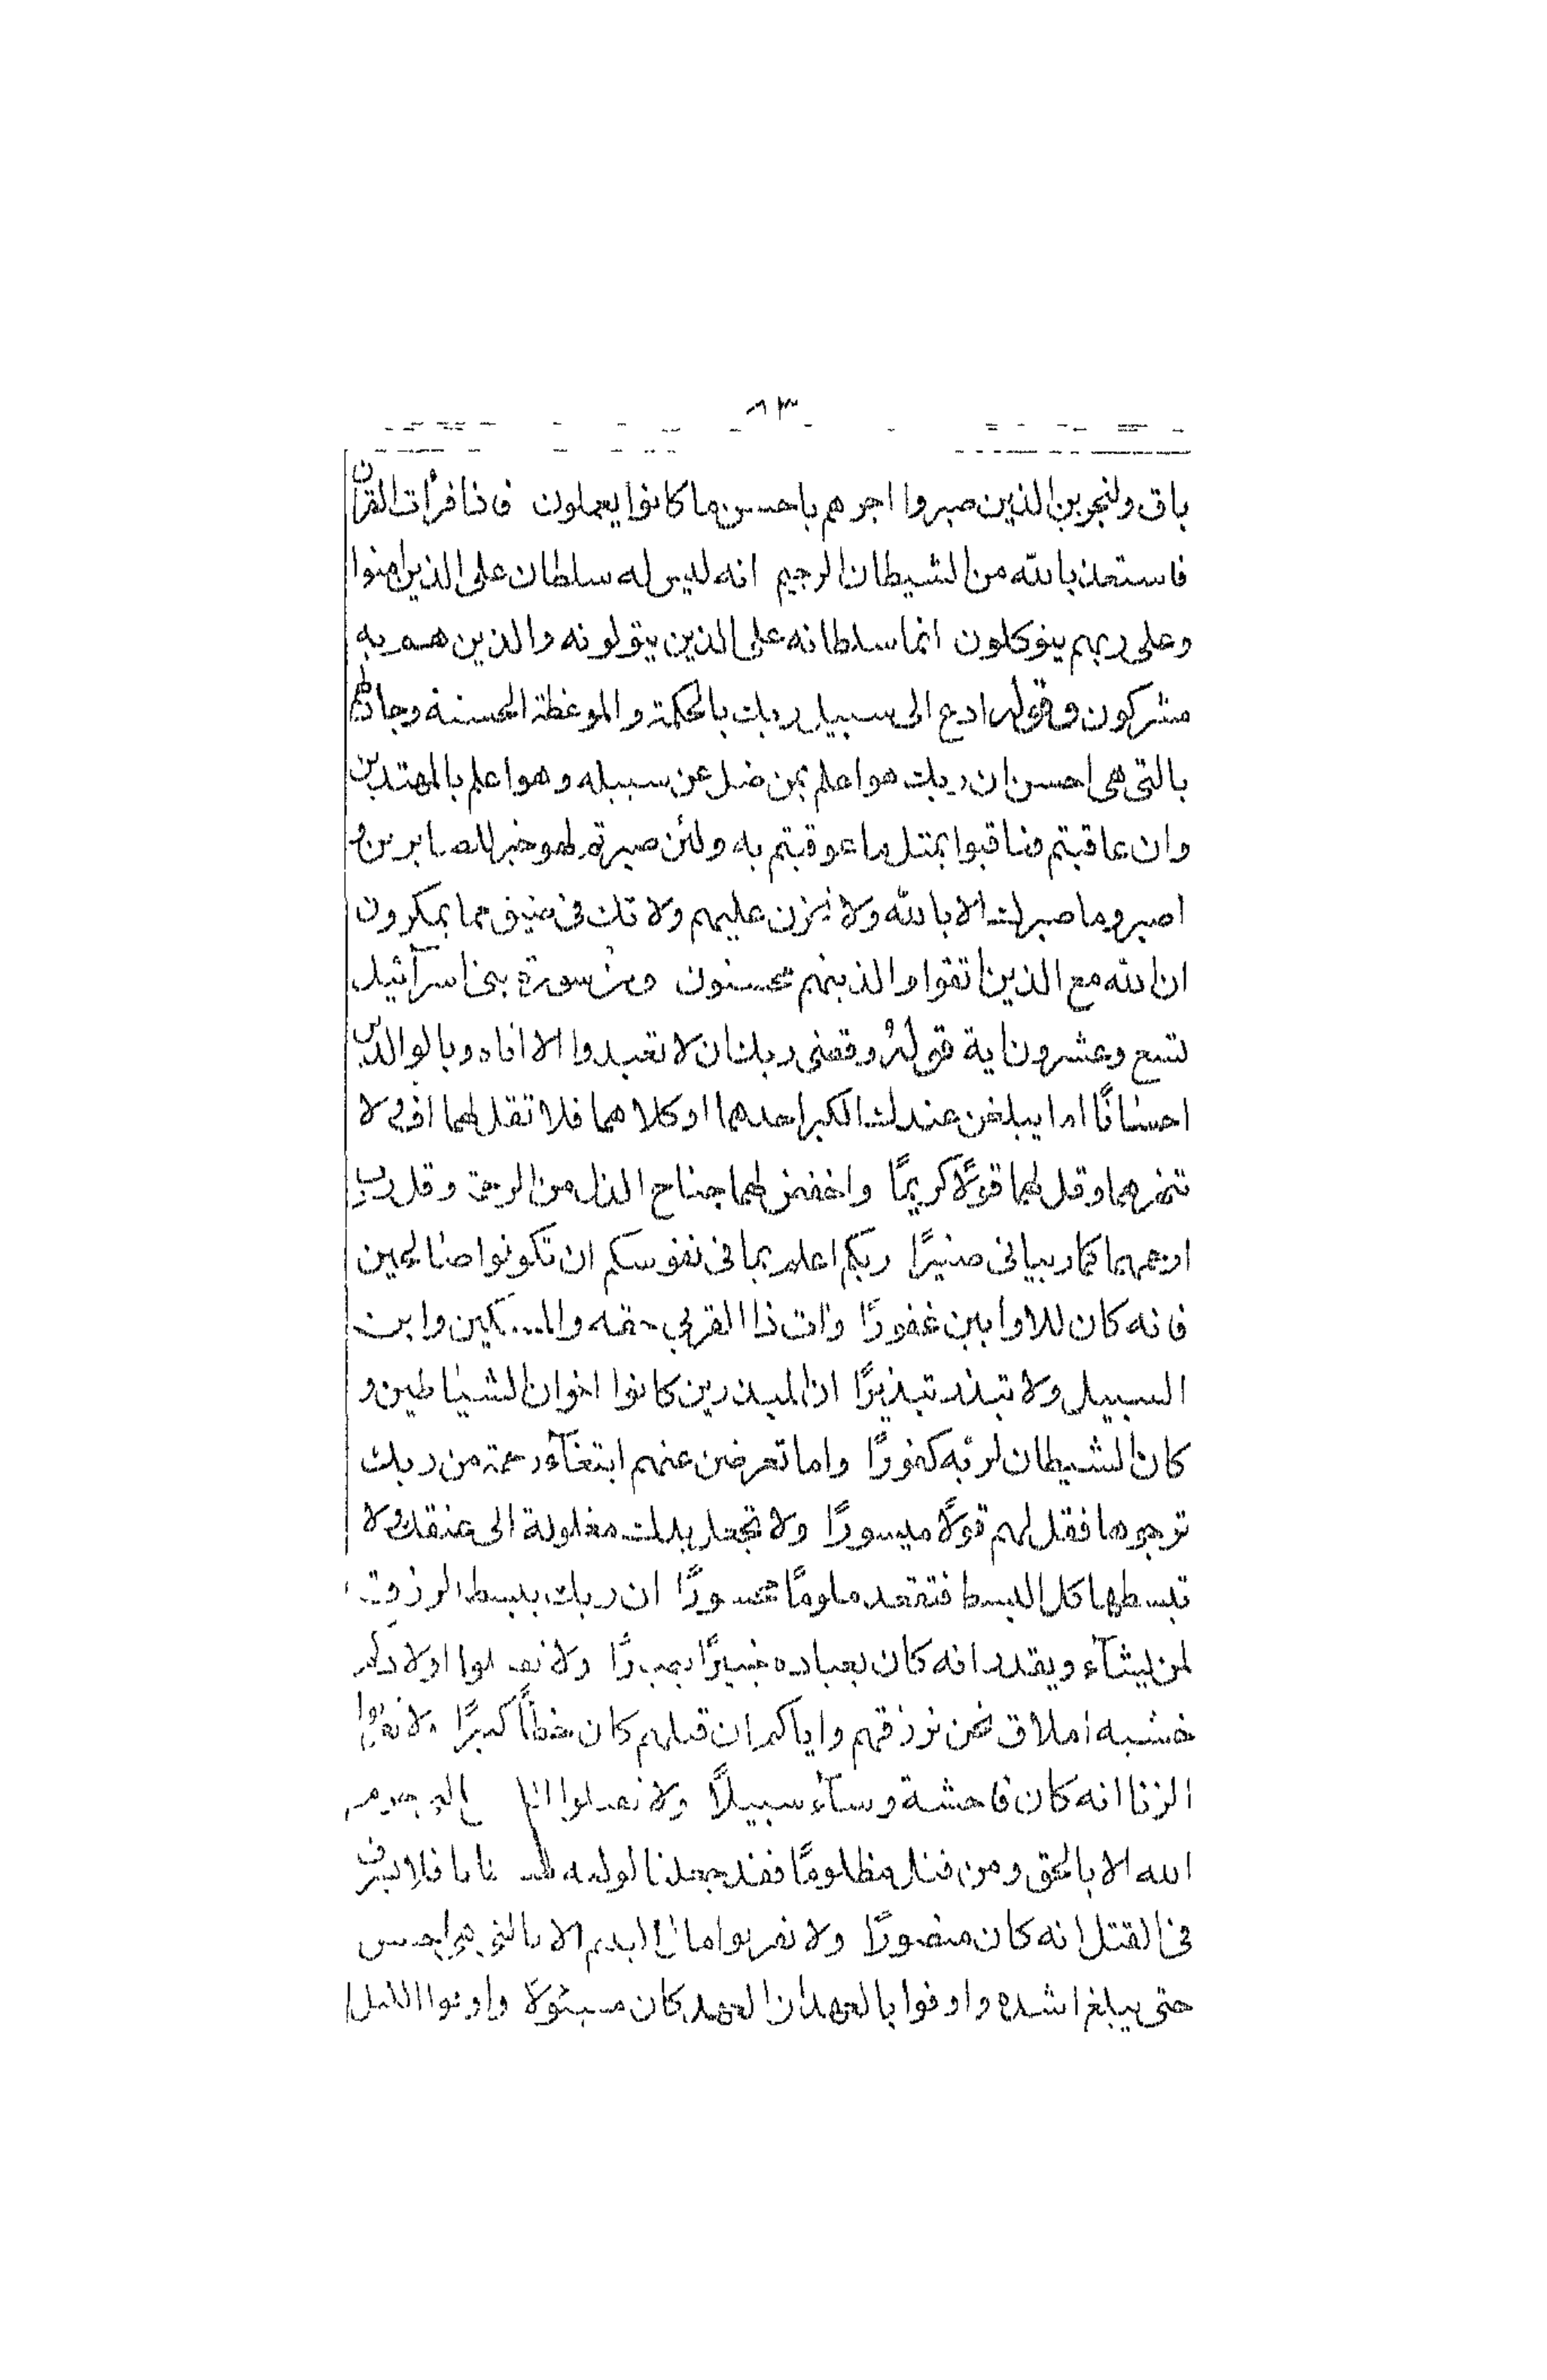 ٨٣
باق ولنجزين الذين صبروا اجرهم باحسن ما كانوا يعملون فاذا قرأت القرآن
فاستعذ بالله من الشيطان الرجيم انه ليس له سلطان على الذين امنوا
وعلى ربهم يتوكلون انما سلطانه على الذين يتولونه والذين هم به
مشركون وقوله ادع الى سبيل ربك بالحكمة والموعظة الحسنة وجادلهم
بالتى هى احسن ان ربك هو اعلم بمن ضل عن سبيله وهو اعلم بالمهتدين
وان عاقبتم فعاقبوا بمثل ما عوقبتم به ولئن صبرتم لهو خير للصابرين و
اصبر وما صبرك الا بالله ولا تحزن عليهم ولا تك فى ضيق مما يمكرون
ان الله مع الذين اتقوا والذينهم محسنون ومن سورة بنى اسرآئيل
تسع وعشرون اية قوله وقضى ربك ان لا تعبدوا الا اياه وبالوالدين
احسانًا اما يبلغن عندك الكبر احدهما او كلاهما فلا تقل لهما اف ولا
تنهرهما وقل لهما قولًا كريمًا واخفض لهما جناح الذل من الرحمة وقل رب
ارحمهما كما ربيانى صغيرًا ربكم اعلم بما فى نفوسكم ان تكونوا صالحين
فانه كان للاوابين غفورًا وات ذا القربى حقه والمسكين وابن
السبيل ولا تبذر تبذيرًا ان المبذرين كانوا اخوان الشياطين و
كان الشيطان لربه كفورًا واما تعرضن عنهم ابتغآء رحمة من ربك
ترجوها فقل لهم قولًا ميسورًا ولا تجعل يدك مغلولة الى عنقك ولا
تبسطها كل البسط فتقعد ملومًا محسورًا ان ربك يبسط الرزق
لمن يشآء ويقدر انه كان بعباده خبيرًا بصيرًا ولا تقتلوا اولادكم
خشية املاق نحن نرزقهم واياكم ان قتلهم كان خطأً كبيرًا ولا تقربوا
الزنا انه كان فاحشة وسآء سبيلًا ولا تقتلوا
الله الا بالحق ومن قتل مظلومًا فقد جعلنا لوليه فلا يسرف
فى القتل انه كان منصورًا ولا تقربوا مال اليتيم الا بالتى هى احسن
حتى يبلغ اشده واوفوا بالعهد ان العهد كان مسئولا واوفوا الكيل